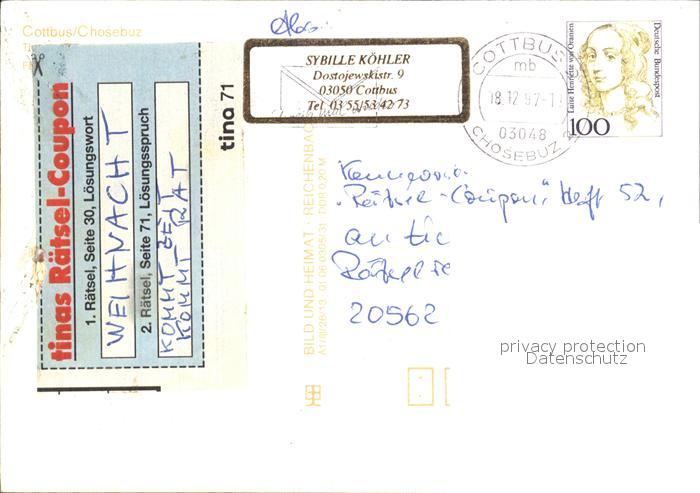 Cottbus/Chosebuz
tinas Rätsel-Coupon
1. Rätsel, Seite 30, Lösungswort
WEIHNACHT
2. Rätsel, Seite 71, Lösungsspruch
KOMMT ZEIT
KOMMT RAT
tina 71
SYBILLE KÖHLER
Dostojewskistr. 9
03050 Cottbus
Tel. 03 55/53 42 73
COTTBUS
mb
18.12.97-1
03048
CHOSEBUZ
Luise Henriette von Oranien
Deutsche Bundespost
100
BILD UND HEIMAT · REICHENBACH
Kennwort:
"Rätsel-Coupon", Heft 52,
an tina
20562
privacy protection
Datenschutz